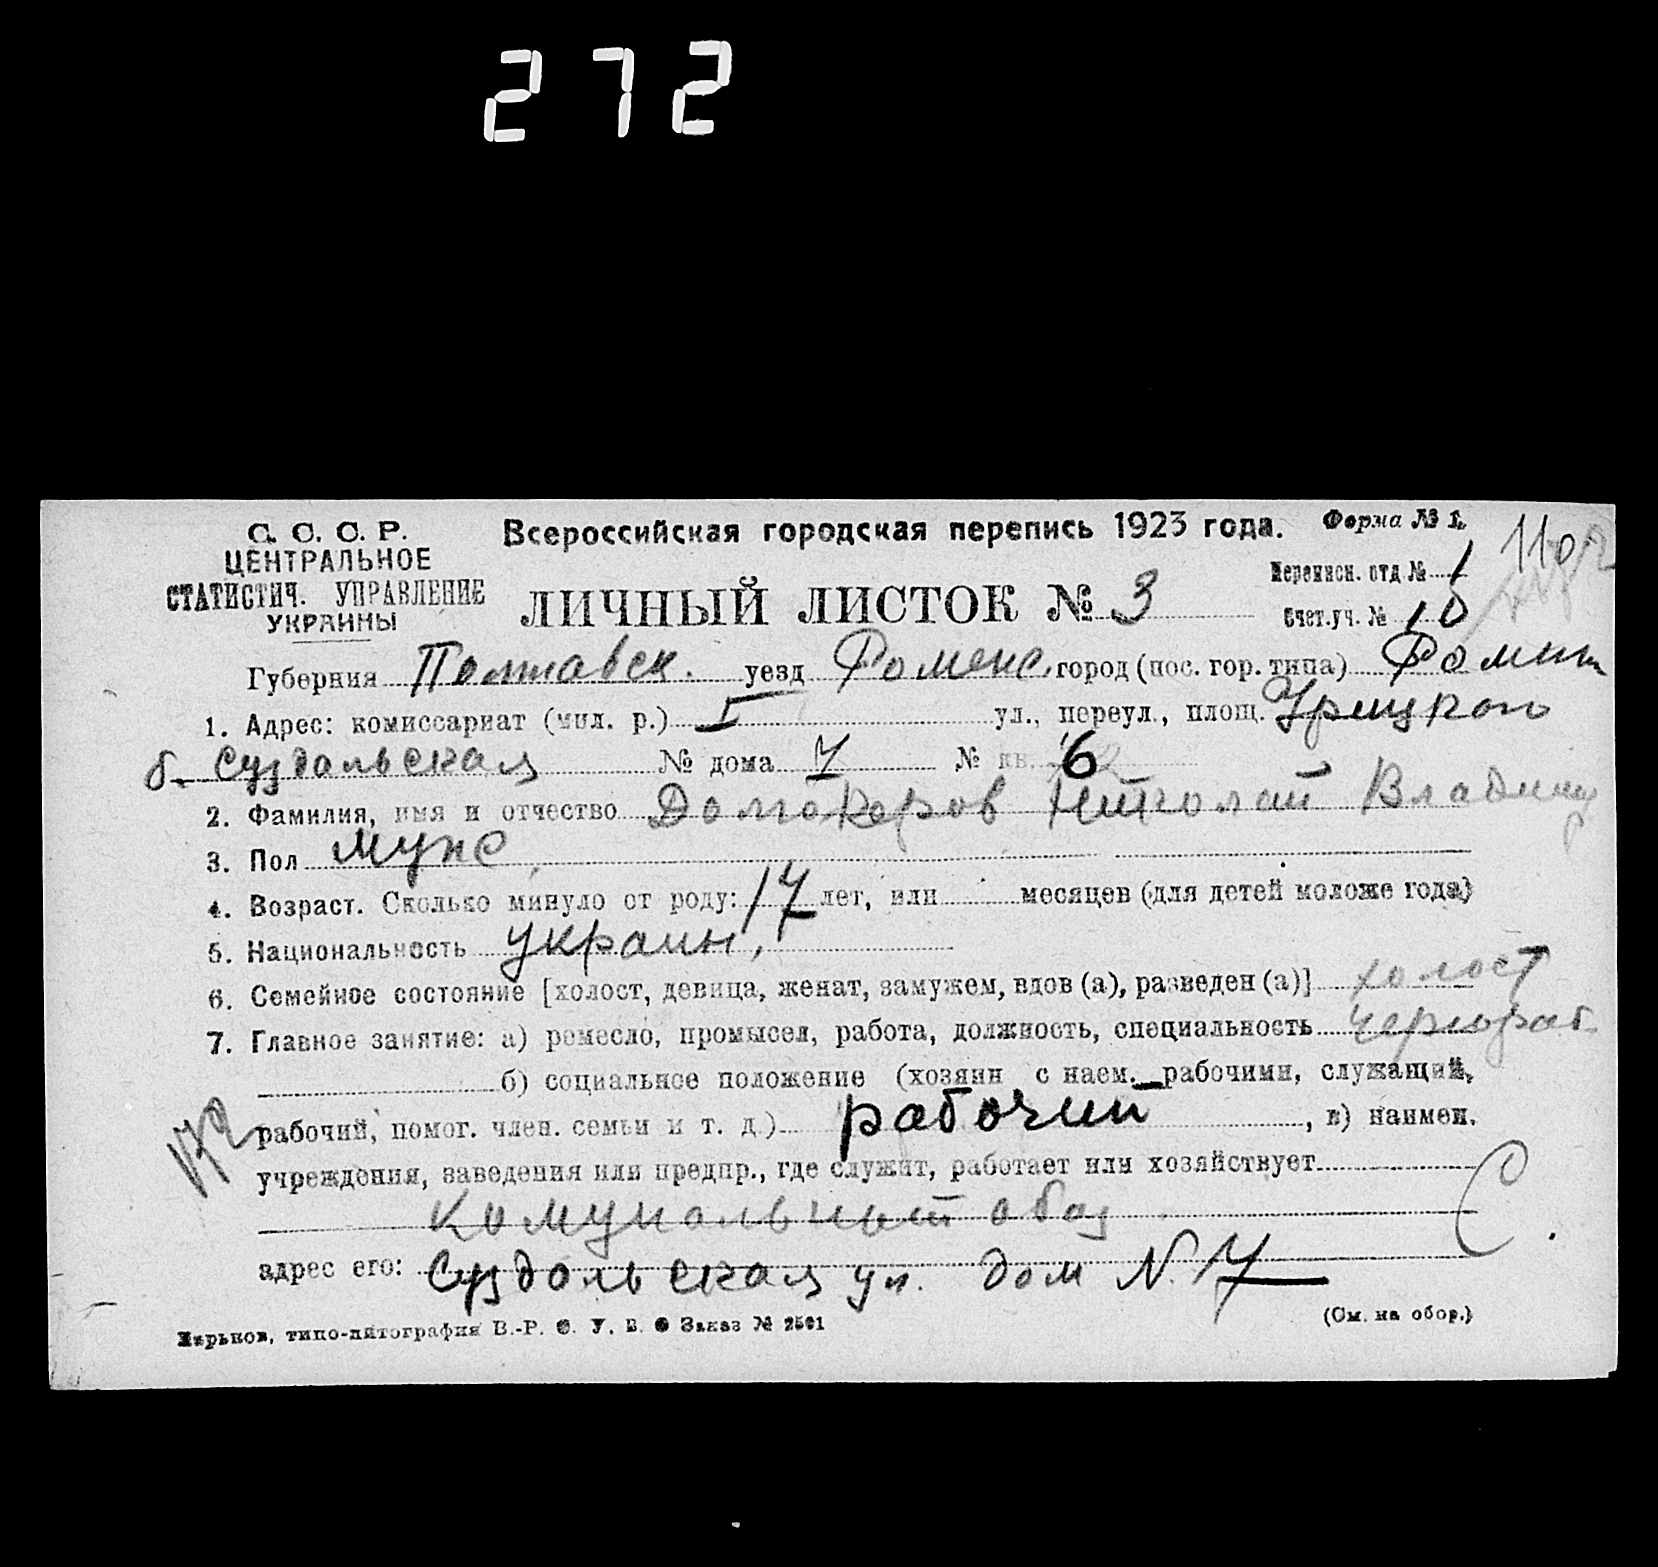 272
С. С. С. Р.
ЦЕНТРАЛЬНОЕ
СТАТИСТИЧ. УПРАВЛЕНИЕ
УКРАИНЫ
Всероссийская городская перепись 1923 года.
Форма № 1.
ЛИЧНЫЙ ЛИСТОК № 3
Переписн. отд № 1
Счет.уч. № 10
Губерния Полтавск. уезд Роменс. город (пос. гор. типа) Ромны
1. Адрес: комиссариат (мил. р.) I ул., переул., площ. Урицкого
б. Суздальская № дома 7 № кв. 6
2. Фамилия, имя и отчество Николай Владимир
3. Пол мужс
4. Возраст. Сколько минуло от роду: 17 лет, или месяцев (для детей моложе года)
5. Национальность украин,
6. Семейное состояние [холост, девица, женат, замужем, вдов (а), разведен (а)] холост
7. Главное занятие: а) ремесло, промысел, работа, должность, специальность чернораб.
б) социальное положение (хозяин с наем. рабочими, служащий,
рабочий, помог. член. семьи и т. д.) рабочий, в) наимен.
учреждения, заведения или предпр., где служит, работает или хозяйствует
Комунальный обоз
адрес его: Суздальская ул. дом N. 7
Харьков, типо-литография В.-Р. Ф. У. В. О Заказ № 2501
(См. на обор.)